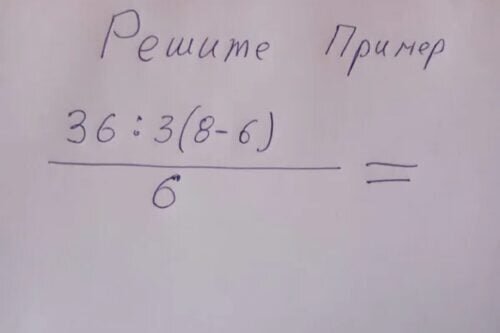 Решите Пример
36 : 3(8-6)
6
=